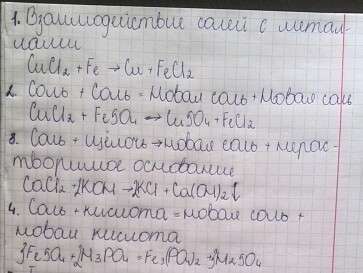 1. Взаимодействие солей с метал-
лами
CuCl2 + Fe → Cu + FeCl2
2. Соль + Соль = Новая соль + Новая соль
CuCl2 + FeSO4 → CuSO4 + FeCl2
3. Соль + щёлочь → новая соль + нерас-
творимое основание
CaCl2 + 2KOH → 2KCl + Ca(OH)2↓
4. Соль + кислота = новая соль +
новая кислота
3FeSO4 + 2H3PO4 = Fe3(PO4)2 + 3H2SO4